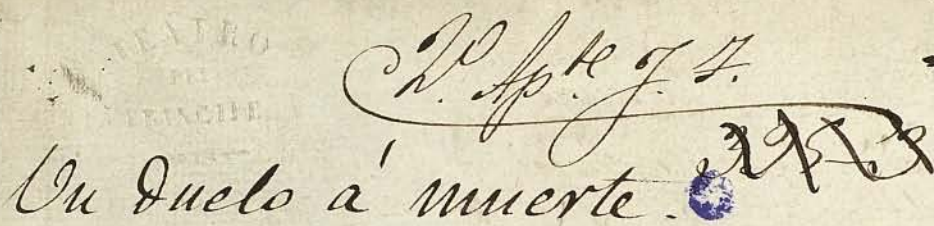 TEATRO
DEL
PRINCIPE
2º Apte J. 7.
Un Duelo á muerte.